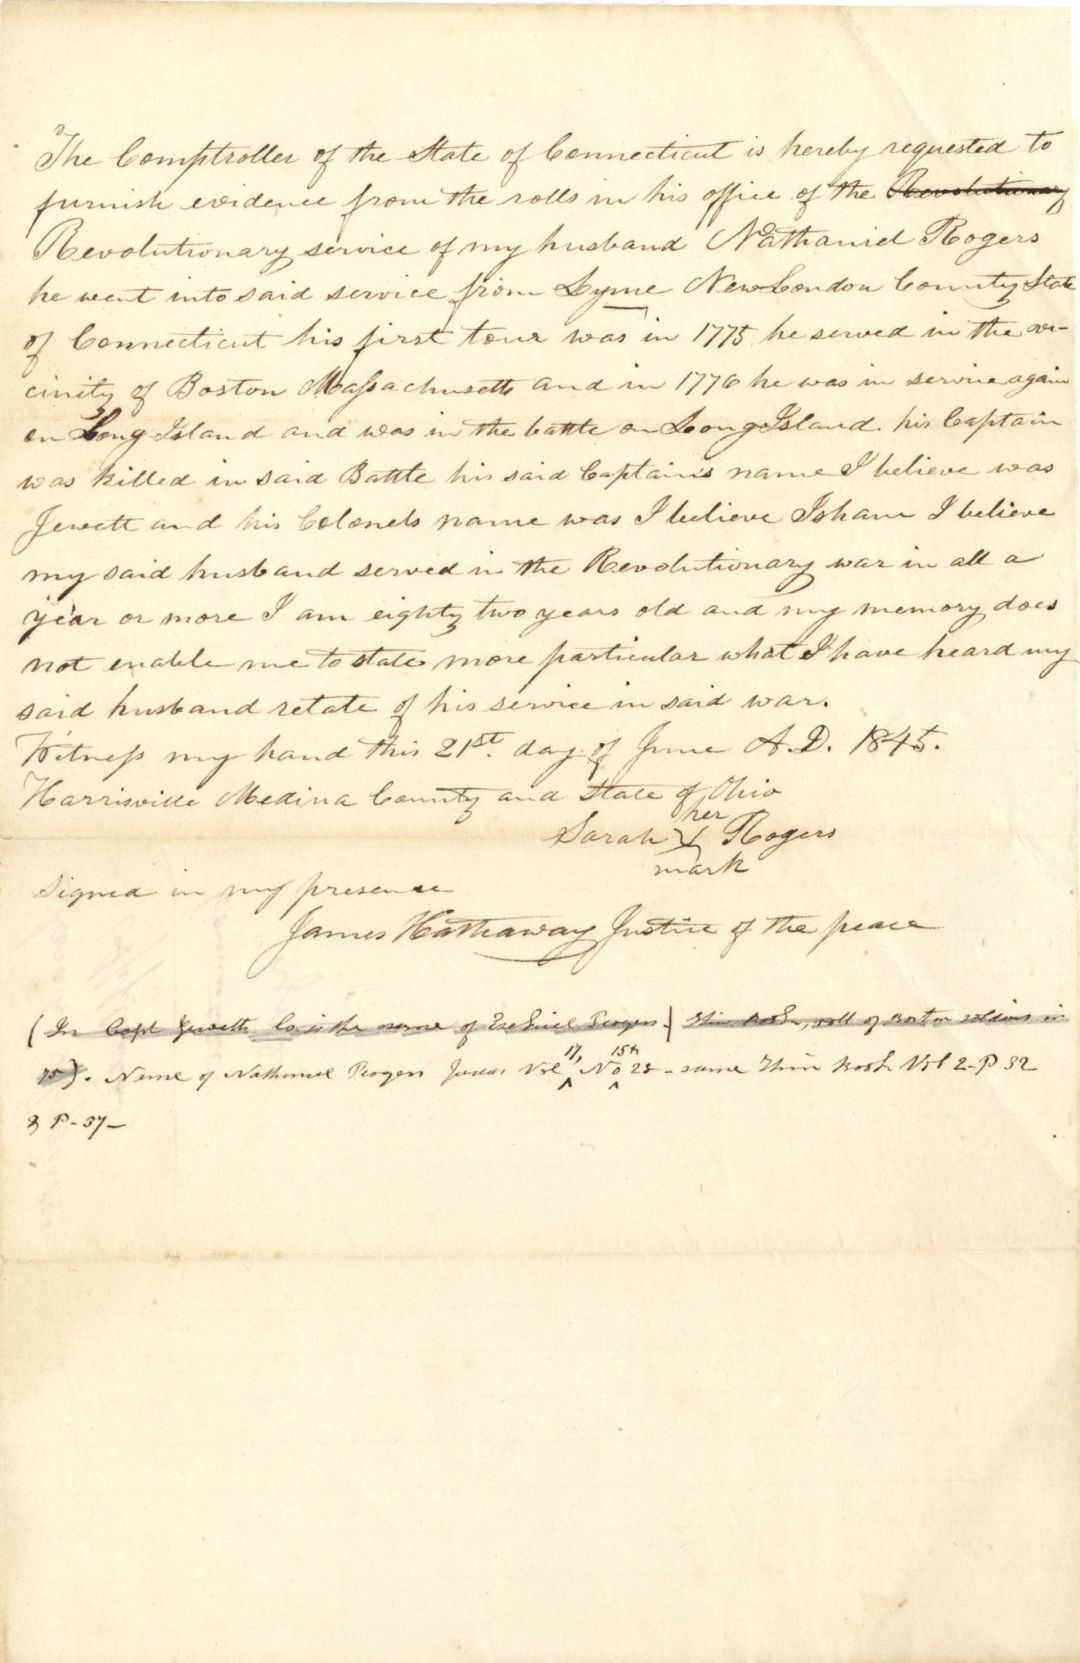 The Comptroller of the State of Connecticut is hereby requested to
furnish evidence from the rolls in his office of the Revolutionary
Revolutionary service of my husband Nathaniel Rogers
he went into said service from Lyme New London County State
of Connecticut his first tour was in 1775 he served in the vi-
cinity of Boston Massachusetts and in 1776 he was in service again
on Long Island and was in the battle on Long Island. his Captain
was killed in said Battle his said Captains name I believe was
Jewett and his Colonels name was I believe Isham I believe
my said husband served in the Revolutionary war in all a
year or more I am eighty two years old and my memory does
not enable me to state more particular what I have heard my
said husband retate of his service in said war.
Witness my hand this 21st. day of June A.D. 1845.
Harrisville Medina County and State of Ohio
her
Sarah X Rogers
mark
Signed in my presence
James Hathaway Justice of the peace
(In Capt Jewetts Co. is the name of Ezekiel Rogers.) Thin Book, roll of Boston soldiers in
75). Name of Nathaniel Rogers Vol 17, No 15th 28 - same Thin Book Vol 2 - P 32
& P - 37 -